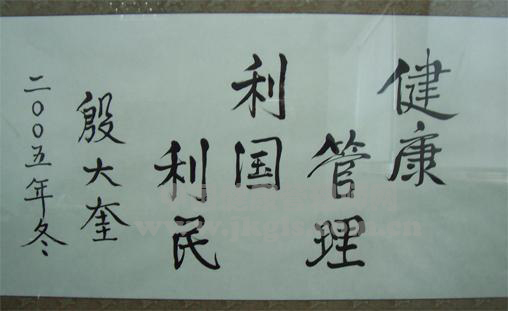 健康
管理
利国
利民
殷大奎
二〇〇五年冬